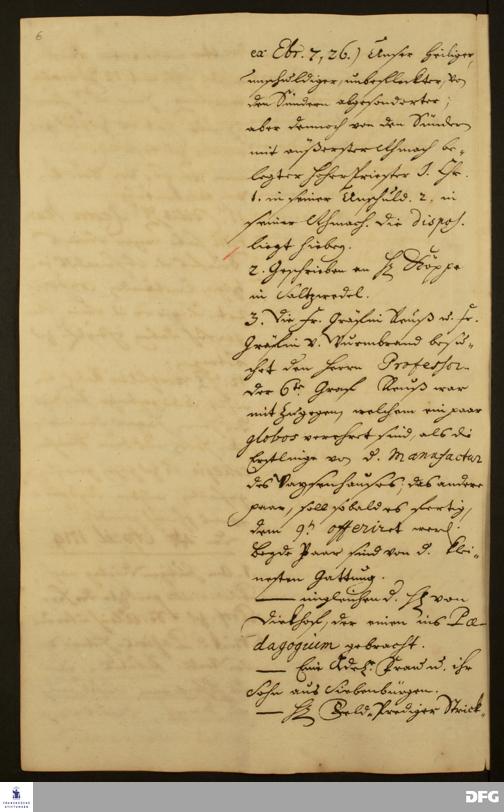 6
ex Ebr. 7, 26.) Unser heiliger,
unschuldiger, unbefleckter, von
den Sündern abgesonderter;
aber dennoch von den Sündern
mit äußerster Schmach be-
legter Hoherpriester J. Chr.
1. in seiner Unschuld. 2. in
seiner Schmach. die dispos.
liegt hiebey.
2. Geschrieben an H Köppe
in Saltzwedel.
3. Die Fr. Gräfin Reuß u. Fr.
Gräfin v. Wurmbrand besu-
chet den Herrn Professor.
Der 6te Graf Reuß war
mit zugegen, welchem ein paar
globos verehret sind, als die
Erstlinge von d. Manufactur
des Waysenhauses; das andere
paar, soll sobald es fertig,
dem offeriret werd.
beyde Paar sind von d. klei-
nesten Gattung.
— ingleichen d. H von
Dieskof, der einen ins Pæ-
dagogium gebracht.
— Eine Adel. Frau u. ihr
Sohn aus Siebenbürgen.
— H Feld-Prediger Strick-
FRANCKESCHE
STIFTUNGEN
DFG